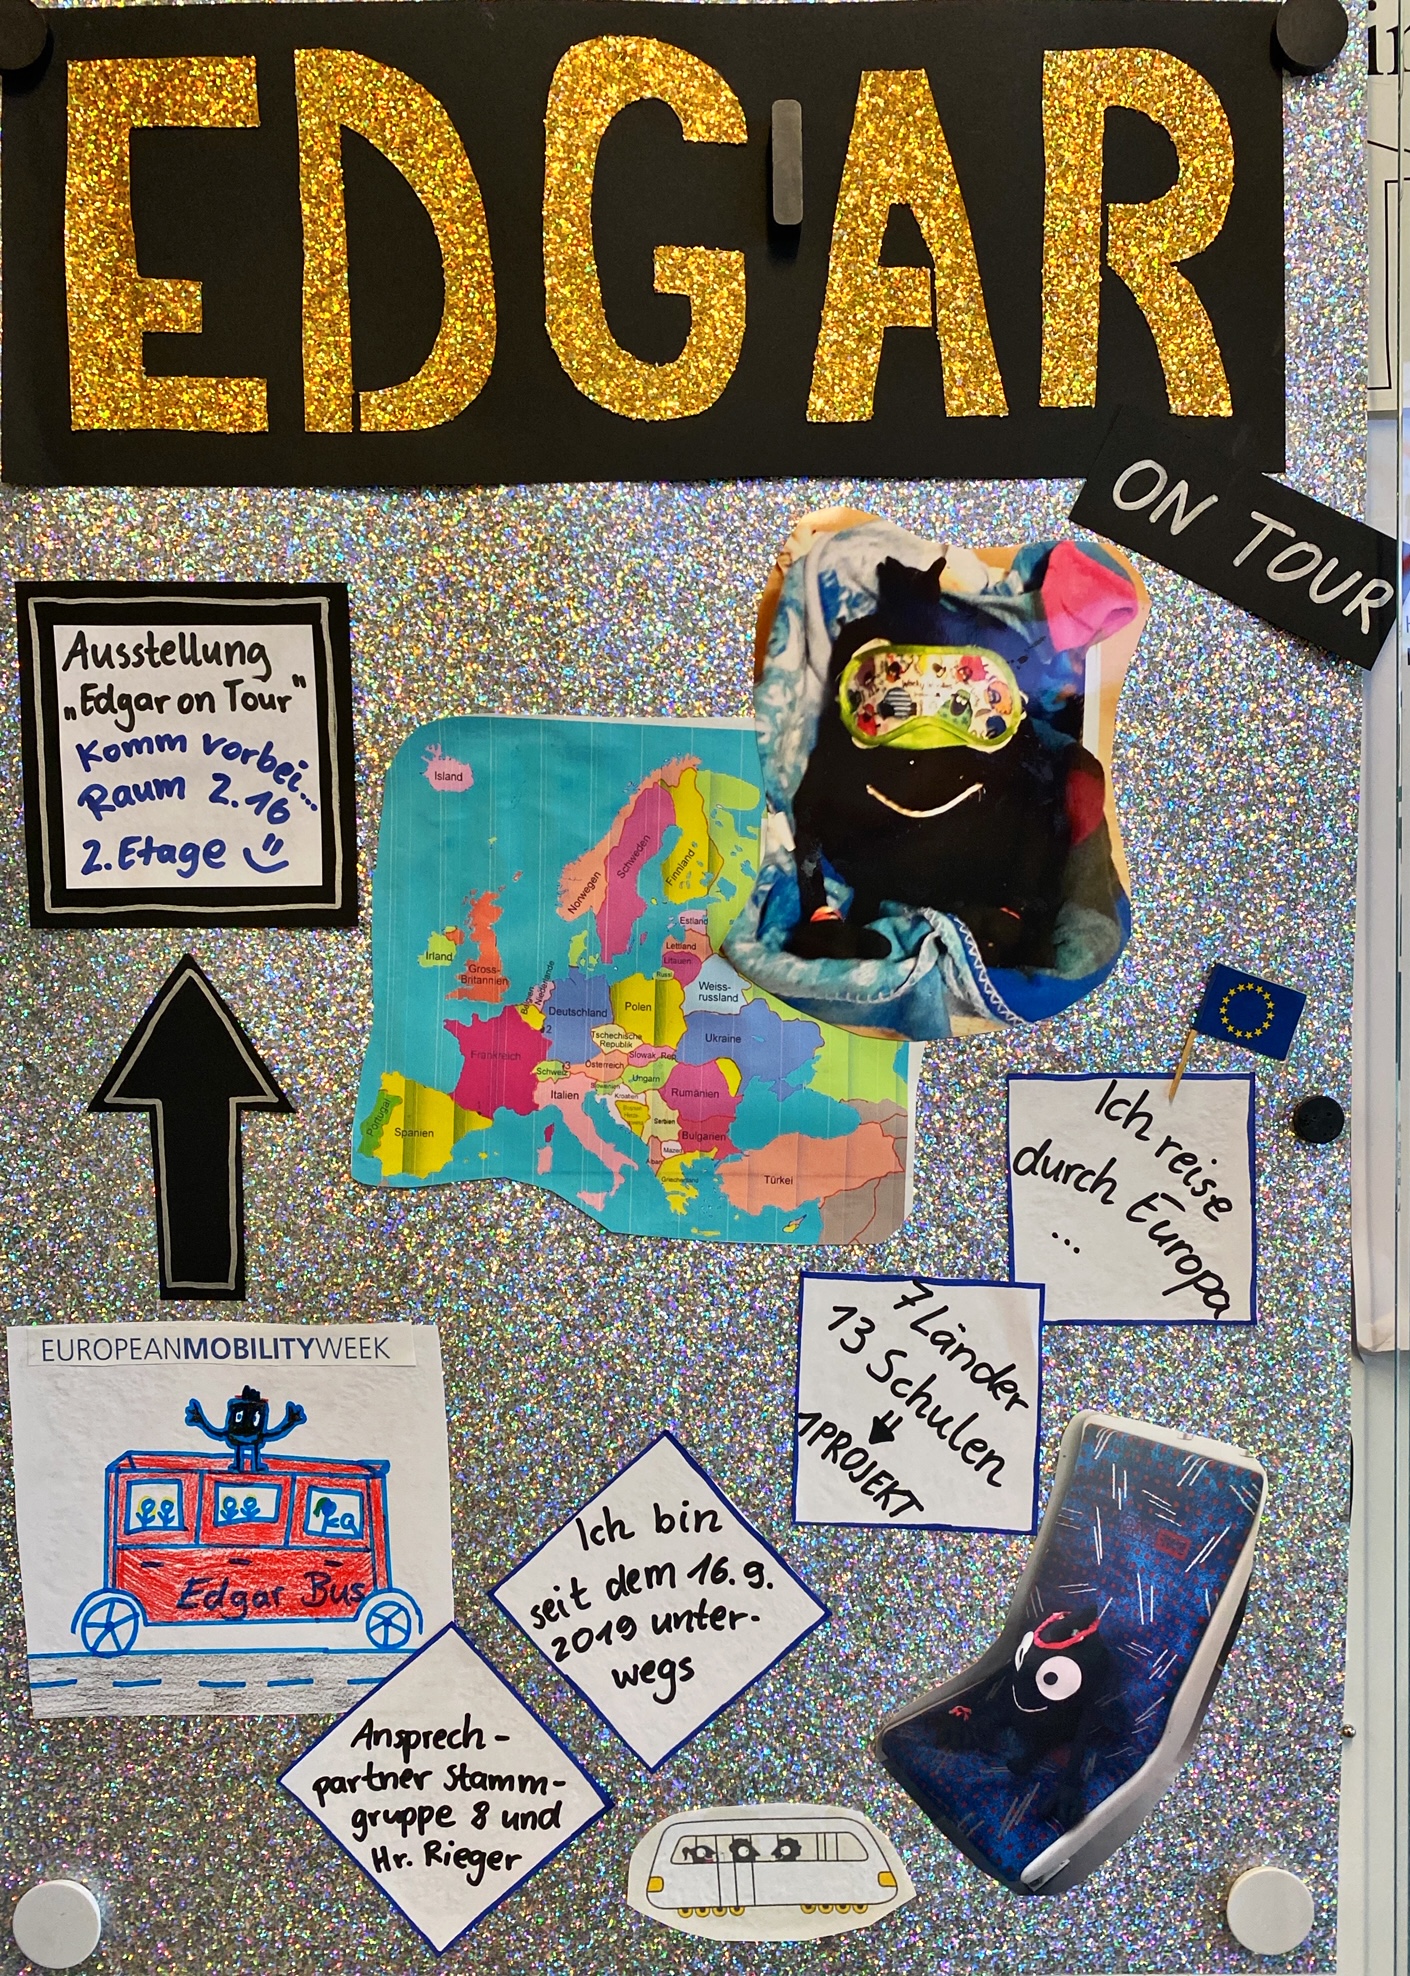 EDGAR
ON TOUR
Ausstellung
„Edgar on Tour"
Komm vorbei...
Raum 2.16
2. Etage
Island
Norwegen
Schweden
Finnland
Estland
Lettland
Litauen
Russl
Irland
Gross-
Britannien
Niederlande
Belgien
Deutschland
Polen
Weiss-
russland
Ukraine
Tschechische
Republik
Slowak. Rep
Frankreich
Schweiz
Österreich
Ungarn
Slowenien
Kroatien
Rumänien
Italien
Serbien
Bulgarien
Portugal
Spanien
Griechenland
Türkei
Ich reise
durch Europa
...
7 Länder
13 Schulen
1PROJEKT
EUROPEANMOBILITYWEEK
Edgar Bus
Ich bin
seit dem 16.9.
2019 unter-
wegs
Ansprech-
partner Stamm-
gruppe 8 und
Hr. Rieger